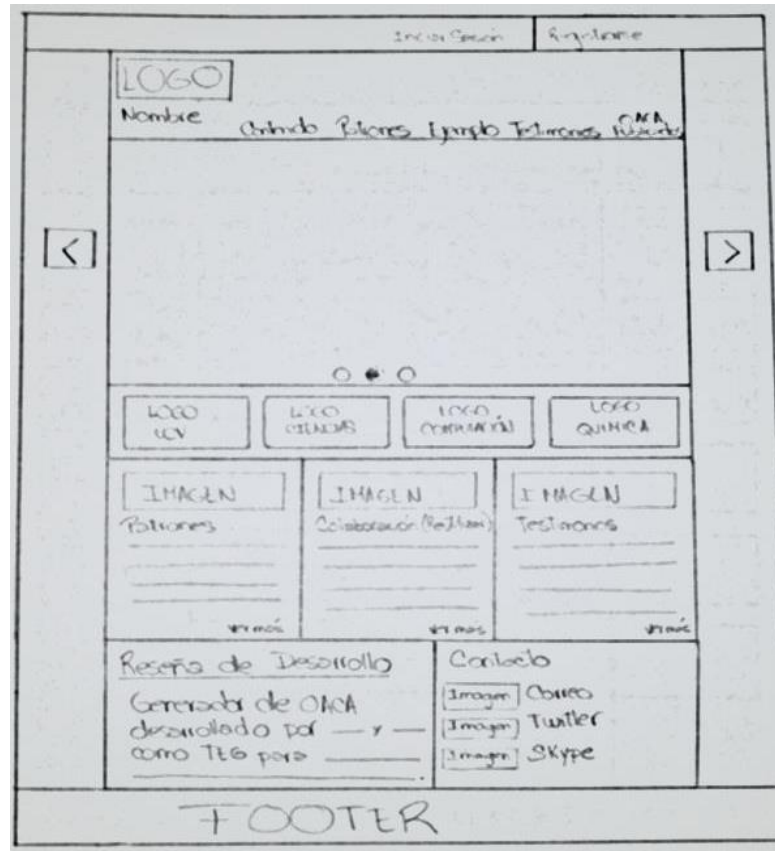 Iniciar Sesión Registrarse
LOGO
Nombre
Contenido Patrones Ejemplo Testimonios OACA
<
>
LOGO UCV
LOGO CIENCIAS
LOGO COMPUTACIÓN
LOGO QUIMICA
IMAGEN IMAGEN IMAGEN
Patrones Colaboración Testimonios
ver más ver más ver más
Reseña de Desarrollo
Generador de OACA
desarrollado por — y —
como TEG para
Contacto
Imagen Correo
Imagen Twitter
Imagen Skype
FOOTER